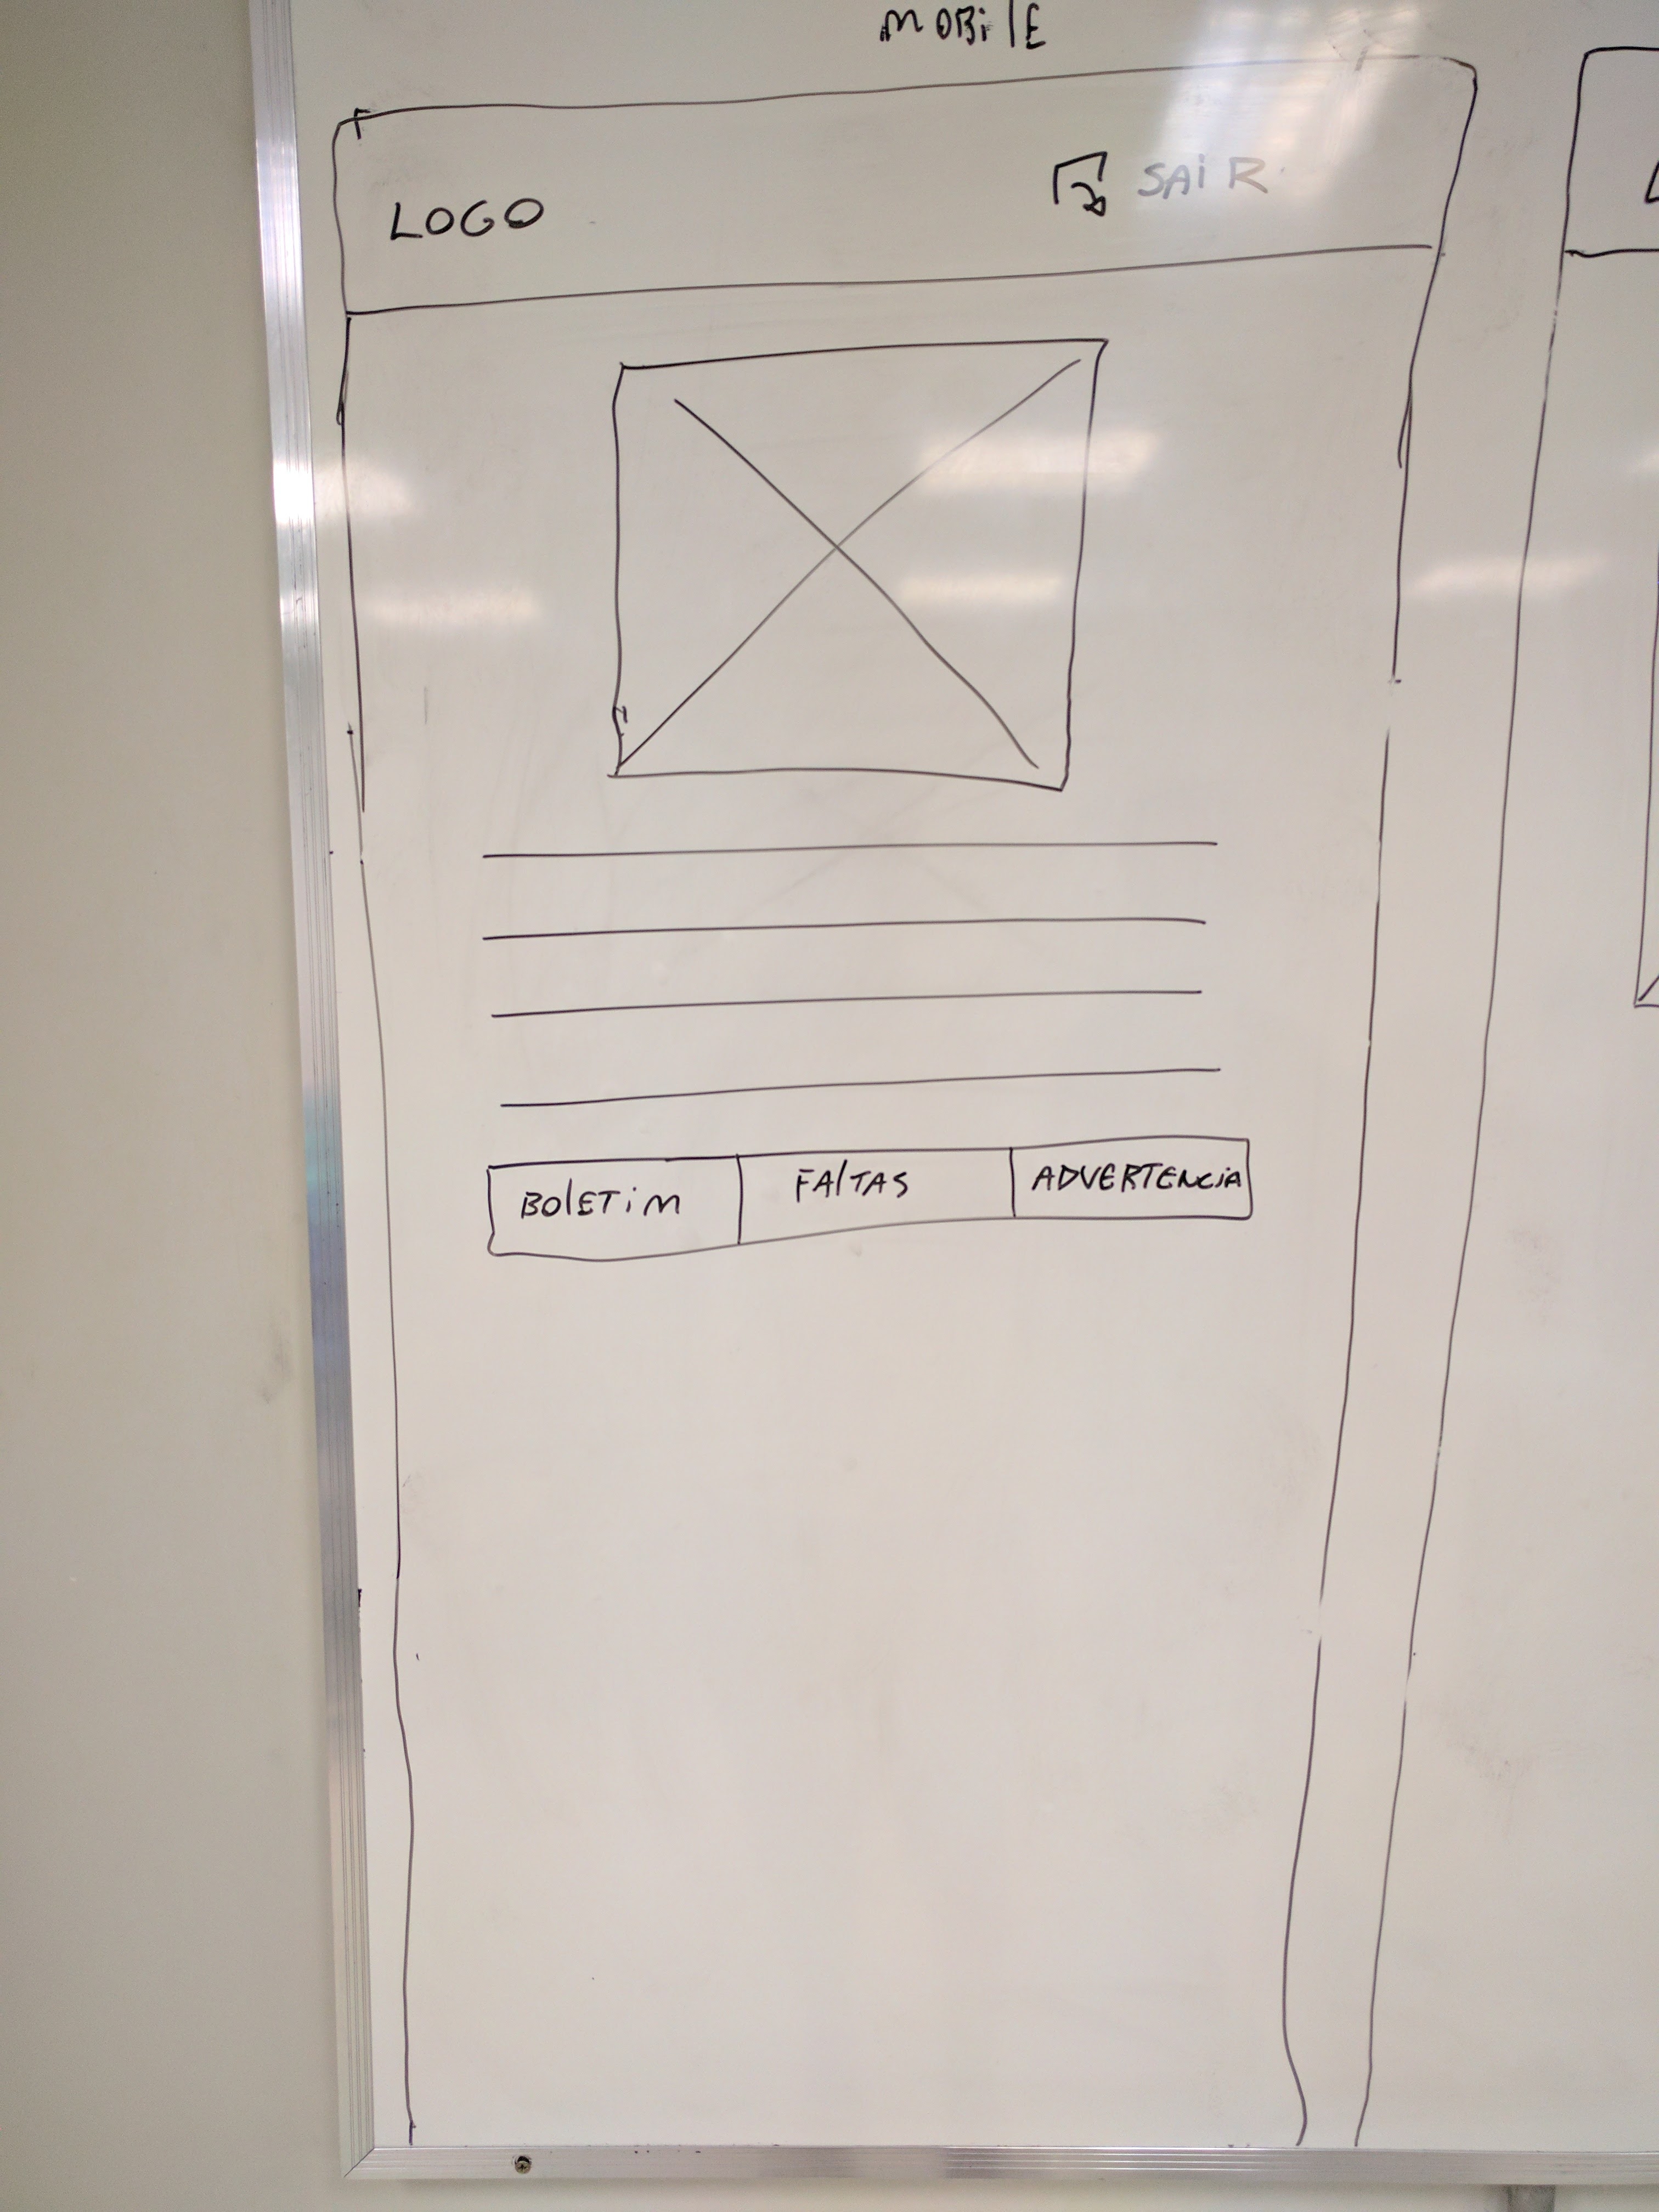 MOBILE
LOGO SAIR
BOLETIM FALTAS ADVERTENCIA